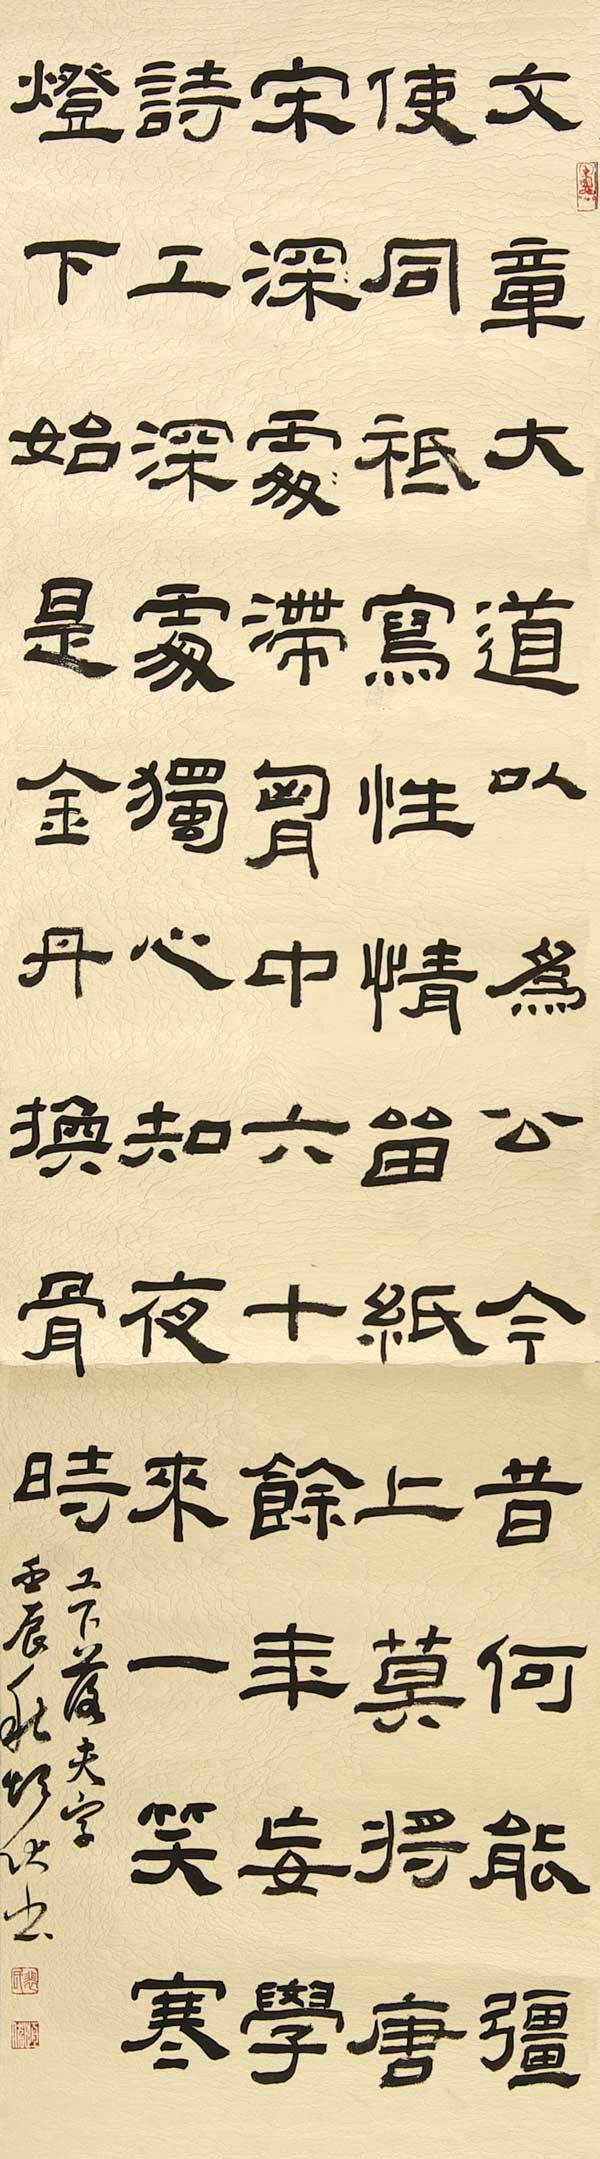 文章大道以為公今昔何能彊
使同祗寫性情留紙上莫將唐
宋深處滯胷中六十餘年妄學
詩工深處獨心知夜來一笑寒
燈下始是金丹換骨時
工下落夫字
壬辰秋書